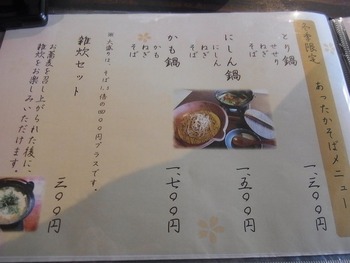 冬季限定　あったかそばメニュー
とり鍋　一、三〇〇円
せせり
ねぎ
そば
にしん鍋　一、五〇〇円
にしん
ねぎ
そば
かも鍋　一、七〇〇円
かも
ねぎ
そば
※大盛りは、そばい倍の四〇〇円プラスです。
雑炊セット　三〇〇円
お蕎麦を召し上がられた後に、
雑炊をお楽しみいただけます。